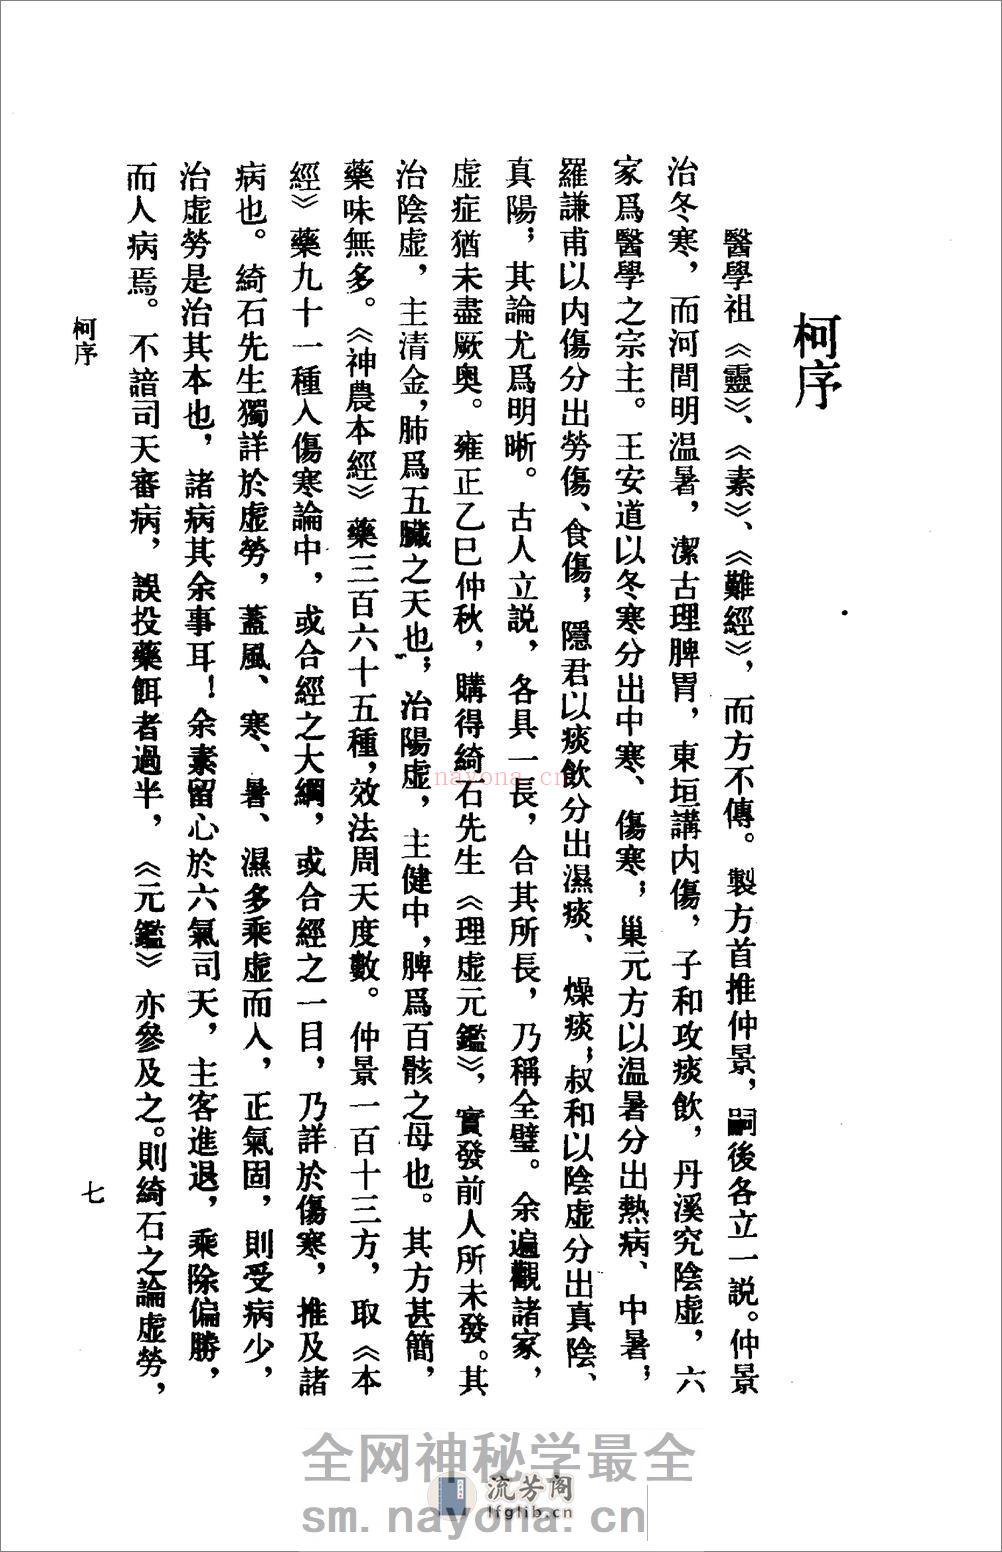 柯序
醫學祖《靈》、《素》、《難經》，而方不傳。製方首推仲景，嗣後各立一説。仲景
治冬寒，而河間明温暑，潔古理脾胃，東垣講内傷，子和攻痰飲，丹溪究陰虚，六
家爲醫學之宗主。王安道以冬寒分出中寒、傷寒；巢元方以温暑分出熱病、中暑；
羅謙甫以内傷分出勞傷、食傷；隱君以痰飲分出濕痰、燥痰；叔和以陰虚分出真陰、
真陽；其論尤爲明晰。古人立説，各具一長，合其所長，乃稱全璧。余遍觀諸家，
虚症猶未盡厥奥。雍正乙巳仲秋，購得綺石先生《理虚元鑑》，實發前人所未發。其
治陰虚，主清金，肺爲五臟之天也；治陽虚，主健中，脾爲百骸之母也。其方甚簡，
藥味無多。《神農本經》藥三百六十五種，效法周天度數。仲景一百十三方，取《本
經》藥九十一種入傷寒論中，或合經之大綱，或合經之一目，乃詳於傷寒，推及諸
病也。綺石先生獨詳於虚勞，蓋風、寒、暑、濕多乘虚而入，正氣固，則受病少，
治虚勞是治其本也，諸病其余事耳！余素留心於六氣司天，主客進退，乘除偏勝，
而人病焉。不諳司天審病，誤投藥餌者過半，《元鑑》亦參及之。則綺石之論虚勞，
柯序
七
nayona.cn
全网神秘学最全
流芳阁
lfglib.cn
sm.nayona.cn